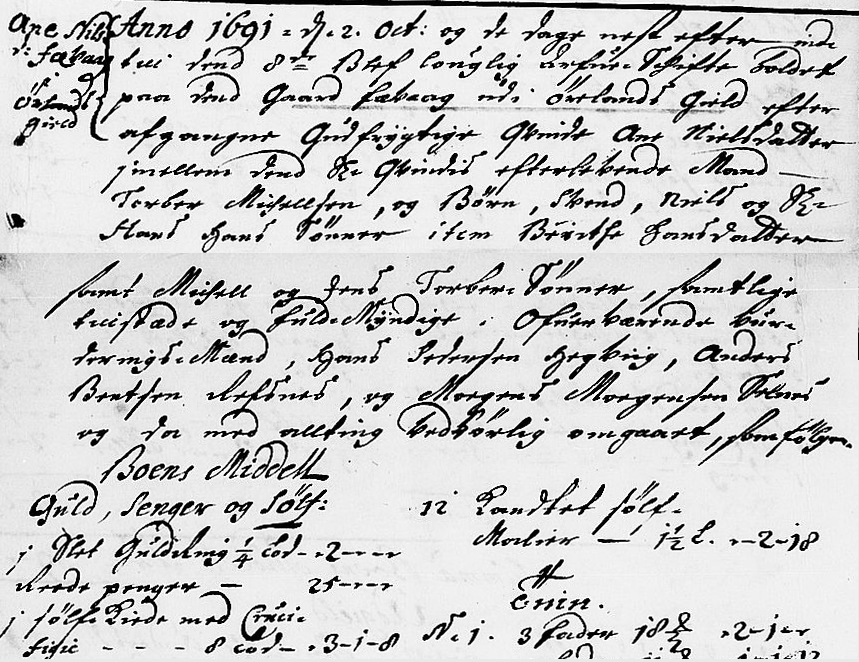 Ane Nils
d: Febaag
i
Ørlands
gield
Anno 1691 = d. 2. Oct: og de dage nest efter ind
till dend 8de Blef louglig arfue Schifte holdet
paa dend Gaard Febaag udi Ørelands gield efter
afgangne Gudfrygtige Qvinde Ane Nielsdatter
imellem dend Sl: Qvindis efterlevende Mand
Torber Michellsen, og Børn, Svend, Niels og Sl:
Hans Hans Sønner item Berithe Hansdatter
samt Michell og Jens Torber: Sønner, samtlige
tilstæde og fuld Myndige. Ofverværende vur:
derings Mænd, Hans Pedersen Hegvig, Anders
Bentsen Refsnes, og Moegens Moegensen Selnes
og da med allting vedbørlig omgaaet, som følger.
Boens Middell
Guld, Penger og Sølf:
1 Slet Guldring 1/4 Lod - 2 - - -
Reede penger - 25 - - -
1 sølf Kiede med Cruci:
fisic - - - 8 Lod - 3-1-8
12 Kandtet sølf
Malier - 1 1/2 L. - 2-18
Tin.
N: 1. 3 fader 18 - 2-1-